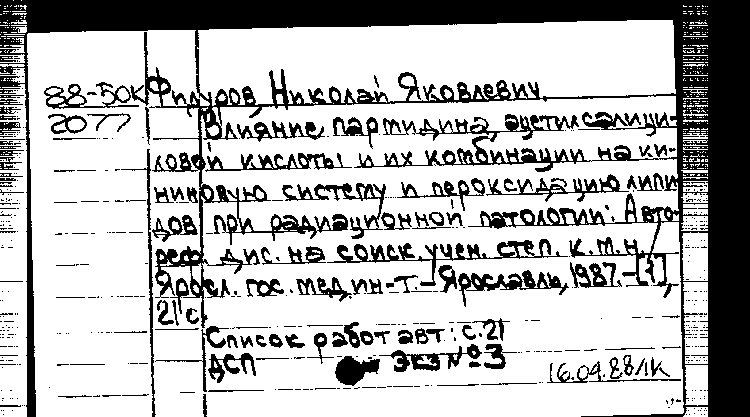 88-50К
2077
Филуров, Николай Яковлевич.
Влияние пармидина, ацетилсалици-
ловой кислоты и их комбинации на ки-
ниновую систему и пероксидацию липи-
дов при радиационной патологии: Авто-
реф. дис. на соиск. учен. степ. к.м.н./
Яросл. гос. мед. ин-т. - Ярославль, 1987. - [1],
21 с.
Список работ авт.: с. 21
ДСП Экз №3
16.04.88 ЛК